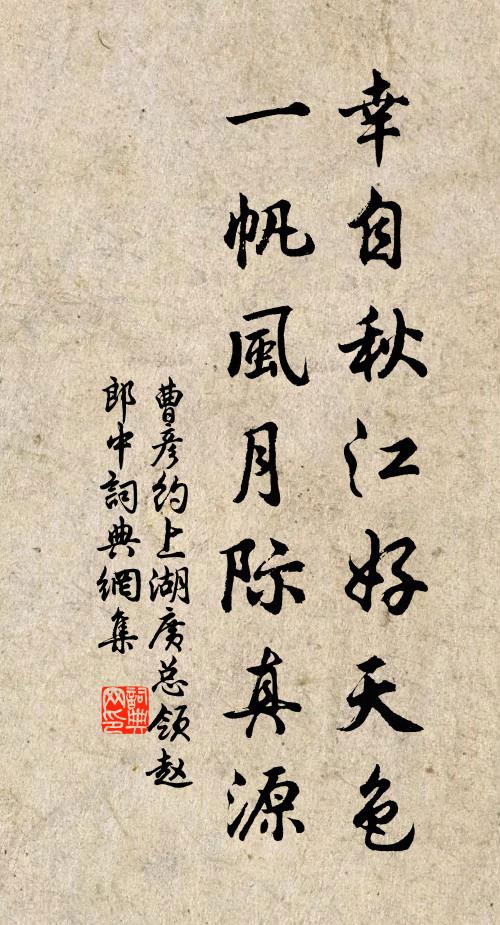 幸自秋江好天色
一帆風月际真源
曹彦约上湖廣总领赵
郎中詞典網集
詞典网印